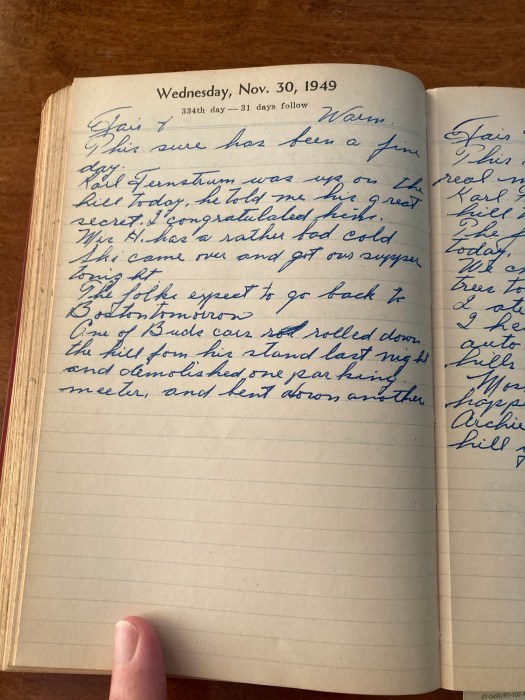 Wednesday, Nov. 30, 1949
334th day — 31 days follow
Fair & Warm.
This sure has been a fine
day.
Karl Fernstrum was up on the
hill today, he told me his great
secret, I congratulated him.
Mrs H. has a rather bad cold
She came over and got our supper
tonight
The folks expect to go back to
Boston tomorrow
One of Buds cars rolled down
the hill fom his stand last night
and demolished one parking
meeter, and bent down another
Fair
This
real
Karl
hill
The
today,
We
trees to
I ate
I he
auto
hills
Mos
happ
Archie
hill